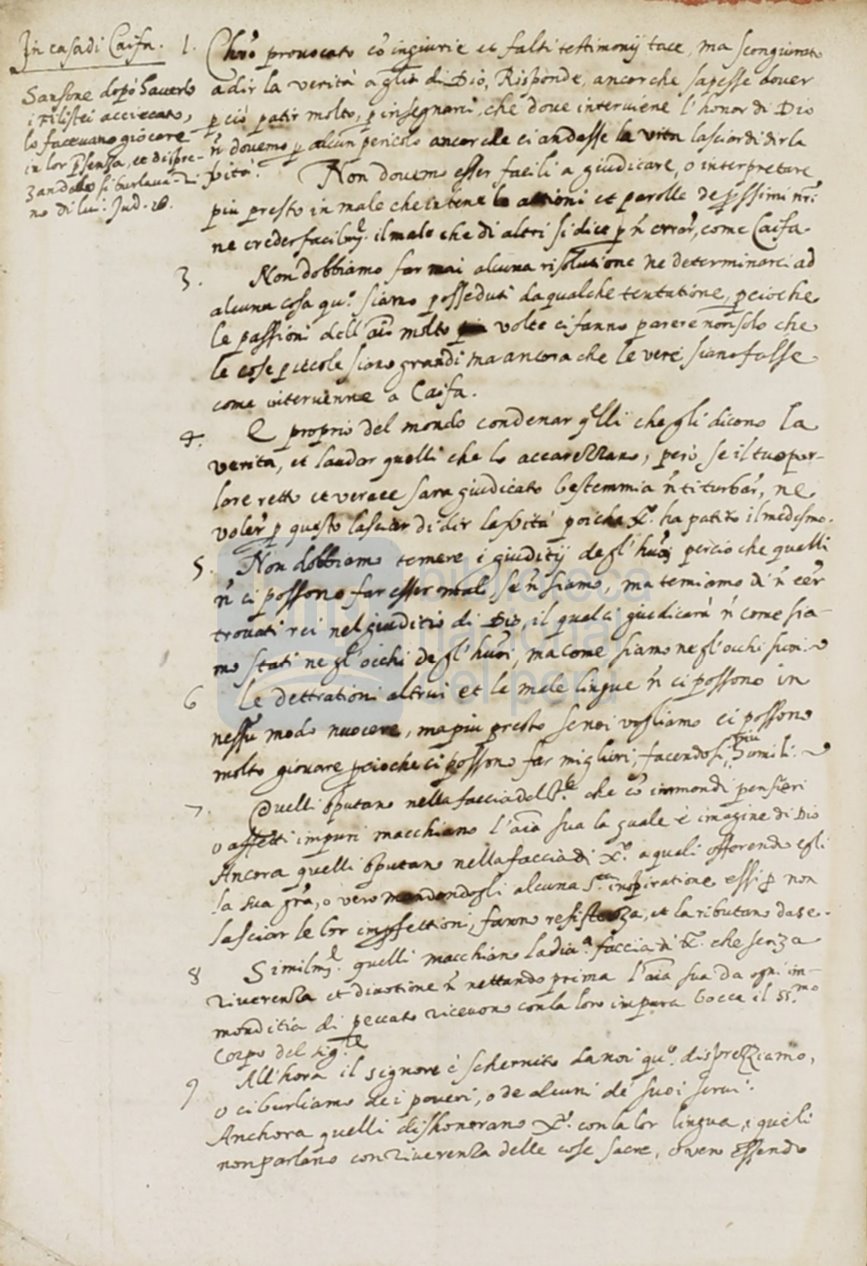 In casa di Caifa.
Sansone dopò haverlo
i filistei acciecato,
lo facevano giocare
in lor psenza, et dispre-
zandolo si burlava-
no di lui. Jud. 16.
1. Chro provocato cō ingiurie et falsi testimonij tace, ma scongiurato
a dir la verità a gloa di Dio, Risponde, ancor che sapesse dover
p ciò patir molto, p insegnarci, che dove interviene l'honor di Dio
ñ dovemo p alcun pericolo ancor che ci andasse la vita lasciar di dir la
vità. Non dovemo esser facili a giudicare, o interpretare
piu presto in male che in bene le attioni et parolle de pssimi nri
ne creder facilmte il male che di altri si dice p ñ errar, come Caifa.
3. Non dobbiamo far mai alcuna risolutione ne determinarci ad
alcuna cosa quo siamo posseduti da qualche tentatione, pcioche
le passioni dell'aīo molte volte ci fanno parere non solo che
le cose piccole siano grandi ma ancora che le vere siano false
come intervenne a Caifa.
4. E proprio del mondo condenar qlli che gli dicono la
verita, et laudar quelli che lo accarezzano, però se il tuo par-
lare retto et verace sara giudicato bestemmia ñ ti turbar, ne
voler p questo lasciar di dir la vità poiche Xo ha patito il medesmo.
5. Non dobbiamo temere i giuditij degl'huoi percio che quelli
ñ ci possono far esser mali se ñ siamo, ma temiamo di ñ eēr
trovati rei nel giuditio di Dio, il qual ci giudicarà ñ come sia-
mo stati ne gl'occhi degl'huoi, ma come siamo negl'occhi suoi.
6 Le dettrationi altrui et le male lingue ñ ci possono in
nessū modo nuocere, ma piu presto se noi vogliamo ci possono
molto giovare pcioche ci possono far migliori, facendosi piu humili.
7. Quelli sputano nella faccia del Sre che cō immondi pensieri
o affetti impuri macchiano l'aīa sua la quale è imagine di Dio
Ancora quelli sputano nella faccia di Xo a quali offerendo egli
la sua gra, o vero mandandogli alcuna sta inspiratione essi p non
lasciar le lor impfettioni, fanno resistenza, et la ributano da se.
8 Similmte quelli macchiano la dīa faccia di Xo che senza
riverenza et divotione ñ nettando prima l'aīa sua da ogni im-
monditia di peccato ricevono con la loro impura bocca il Ssmo
Corpo del Sigre
9 All'hora il signore è schernito da noi quo disprezziamo,
o ci burliamo de i poveri, o de alcuni de suoi servi.
Anchora quelli dishonorano Xo con la lor lingua, i quali
non parlano con riverenza delle cose sacre, o vero essendo
biblioteca
nacional
del perú